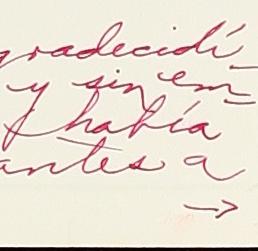 gradecidí-
y sin em-
había
antes a
→